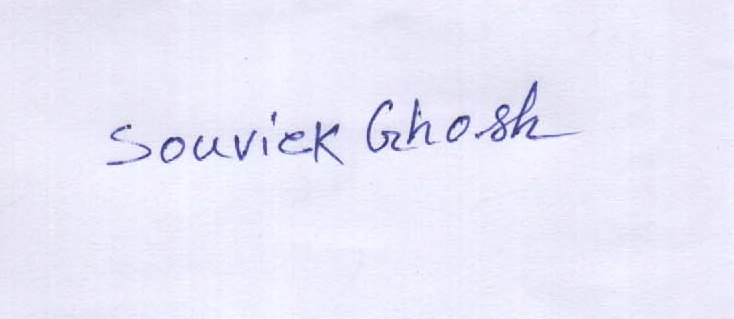 Souvick Ghosh